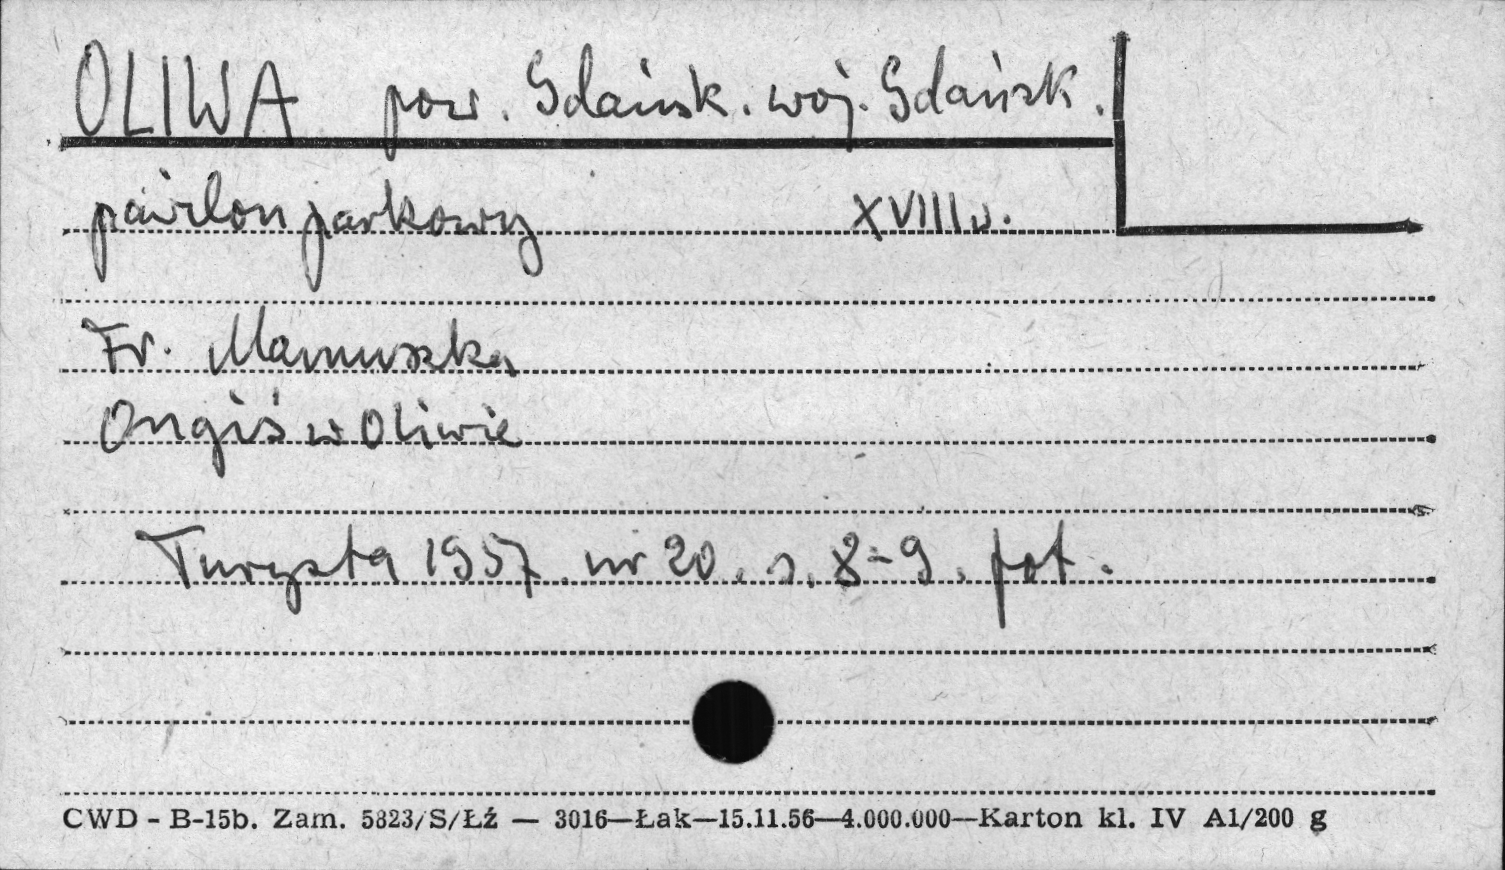 OLIWA pow. Gdańsk. woj. Gdańsk.
pawilon parkowy XVIII w.
Fr. Mamuszka
Ongiś w Oliwie
Turysta 1957. nr 20. s. 8-9. fot.
CWD - B-15b. Zam. 5823/S/Łź — 3016—Łak—15.11.56—4.000.000—Karton kl. IV A1/200 g